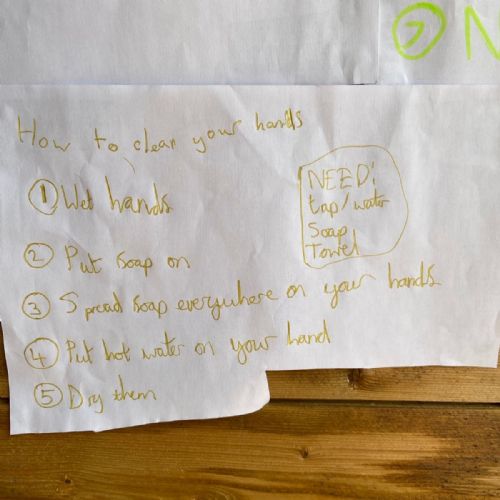 ⑦ N
How to clean your hands
① Wet hands
NEED:
tap/water
Soap
Towel
② Put soap on
③ Spread soap everywhere on your hands
④ Put hot water on your hand
⑤ Dry them